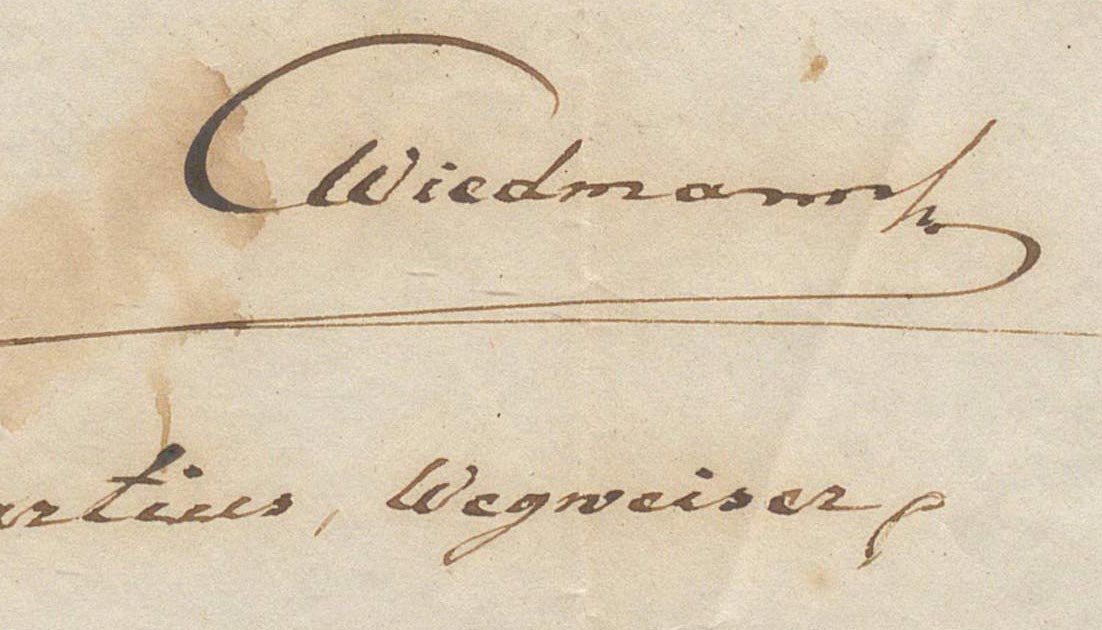 Wiedmann
artius, Wegweiser